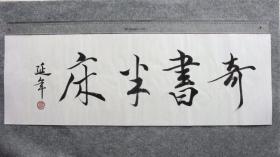 奇書半床
延年